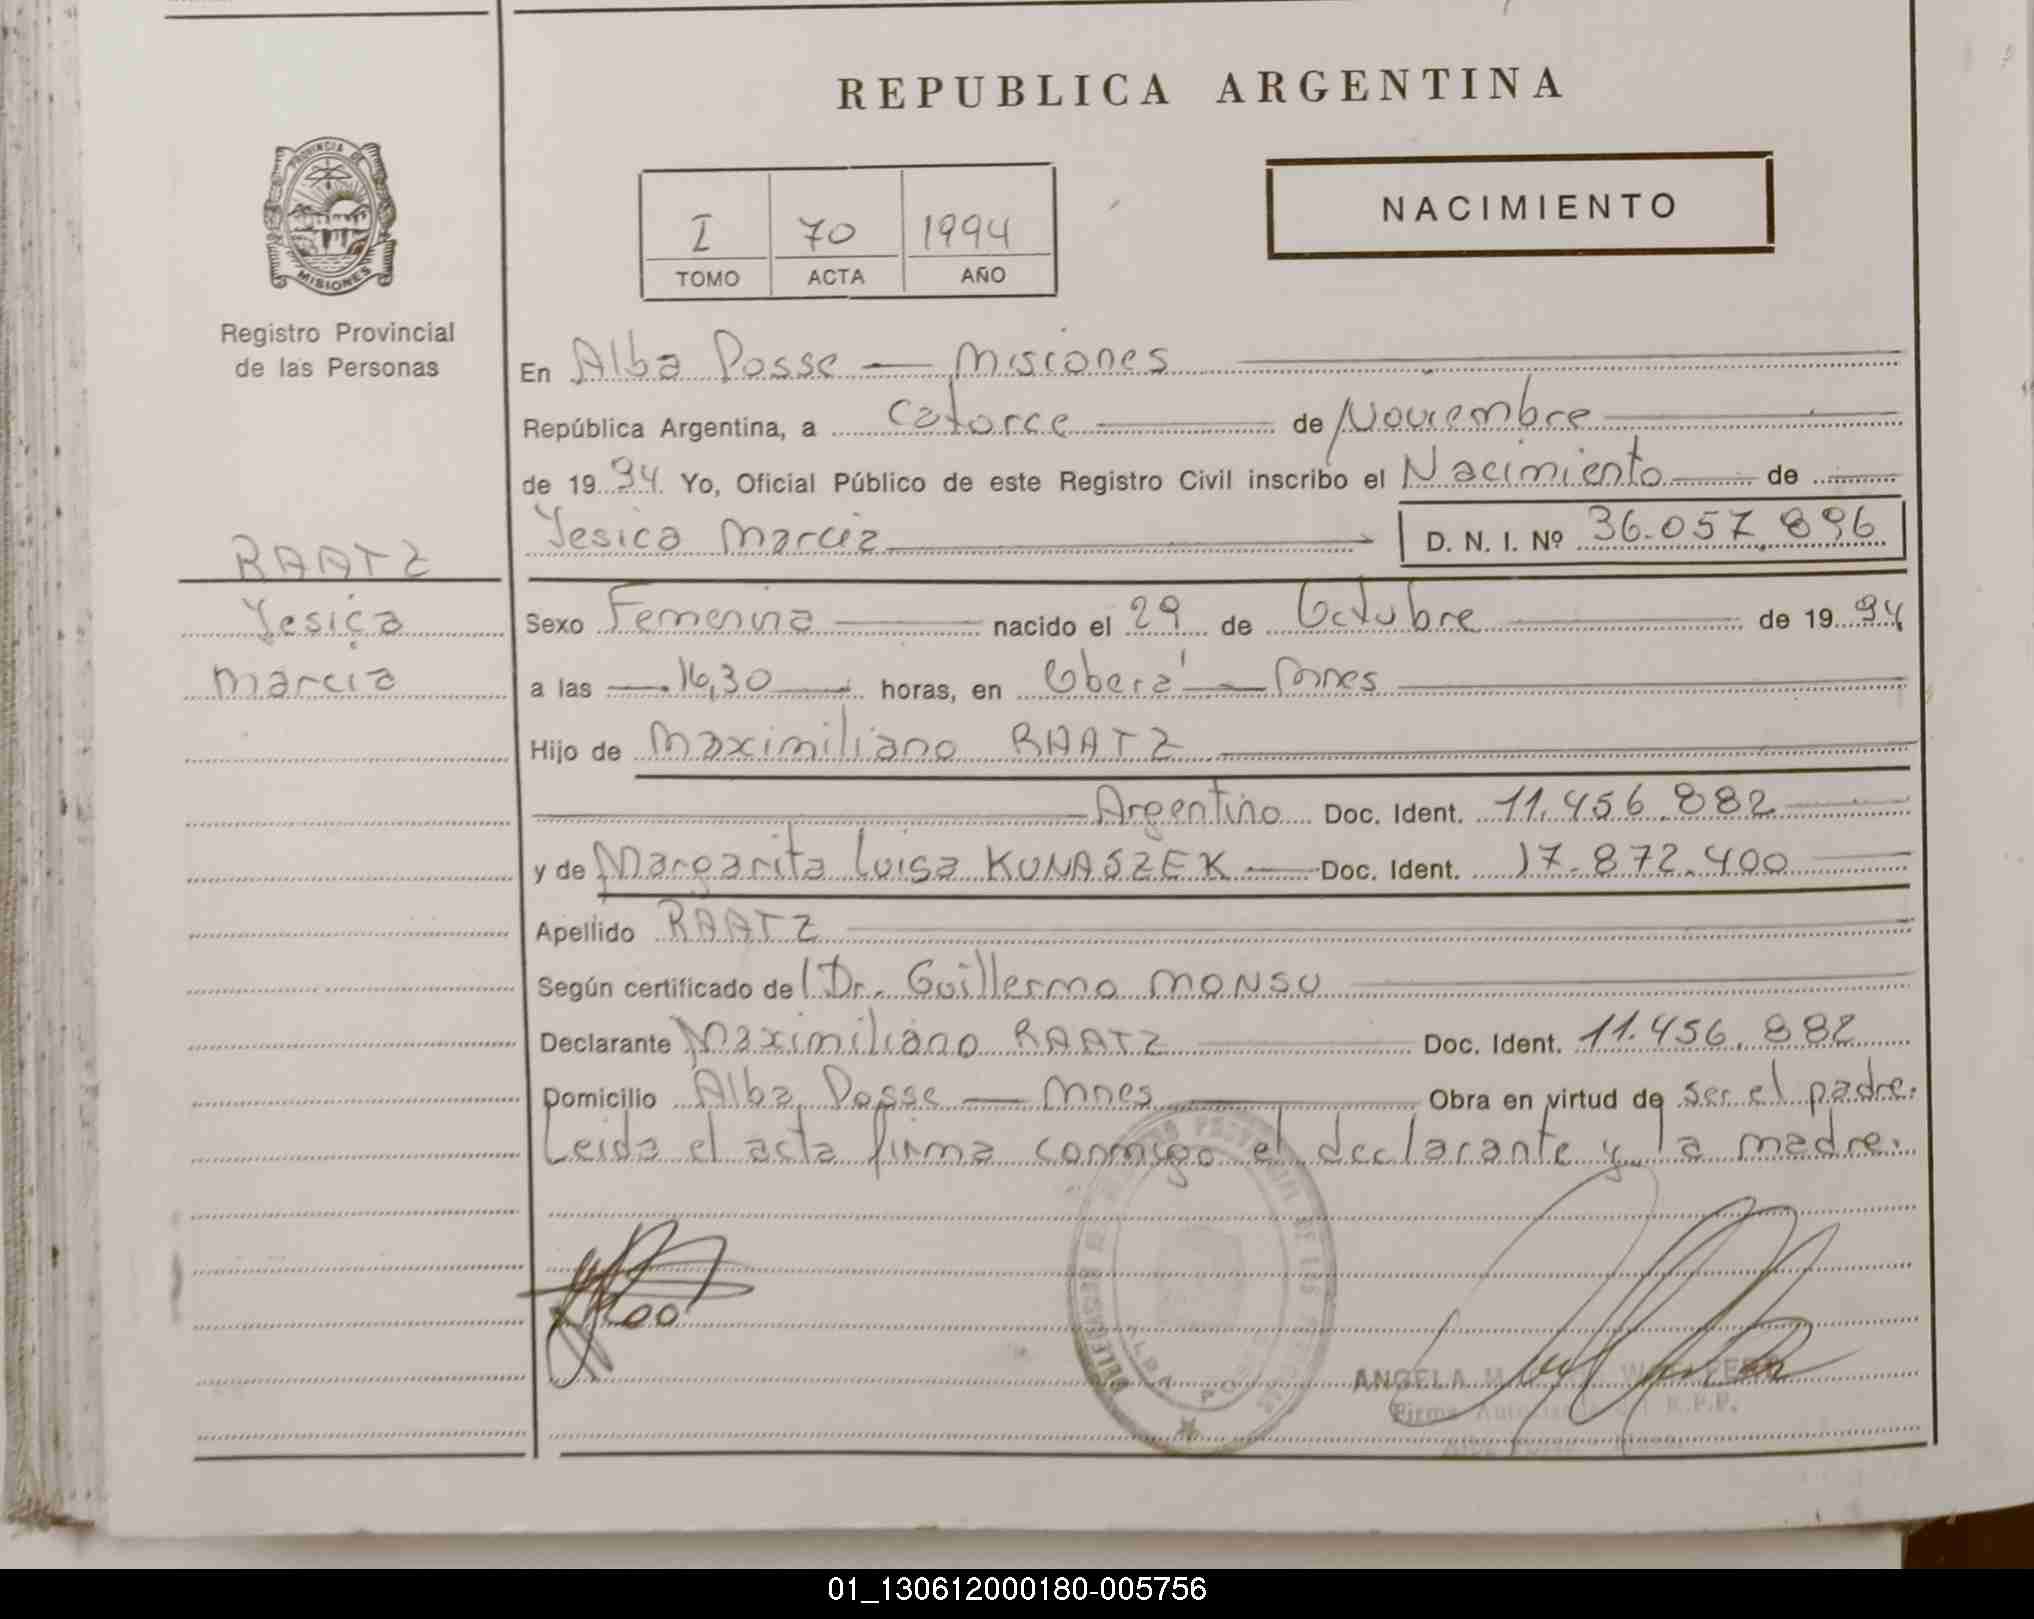 REPUBLICA ARGENTINA
PROVINCIA DE
MISIONES
Registro Provincial
de las Personas
NACIMIENTO
I 70 1994
TOMO ACTA AÑO
En Alba Posse — Misiones
República Argentina, a catorce de Noviembre
de 1994 Yo, Oficial Público de este Registro Civil inscribo el Nacimiento de
Yesica Marcia D. N. I. Nº 36.057.896
RAATZ
Yesica
Marcia
Sexo Femenina nacido el 29 de Octubre de 1994
a las 16,30 horas, en Oberá — Mnes
Hijo de Maximiliano RAATZ
Argentino Doc. Ident. 11.456.882
y de Margarita Luisa KUNASZEK Doc. Ident. 17.872.400
Apellido RAATZ
Según certificado de Dr. Guillermo MONSU
Declarante Maximiliano RAATZ Doc. Ident. 11.456.882
Domicilio Alba Posse — Mnes Obra en virtud de ser el padre.
Leida el acta firma conmigo el declarante y la madre.
ANGELA
Firma Autorizada R.P.P.
01_130612000180-005756